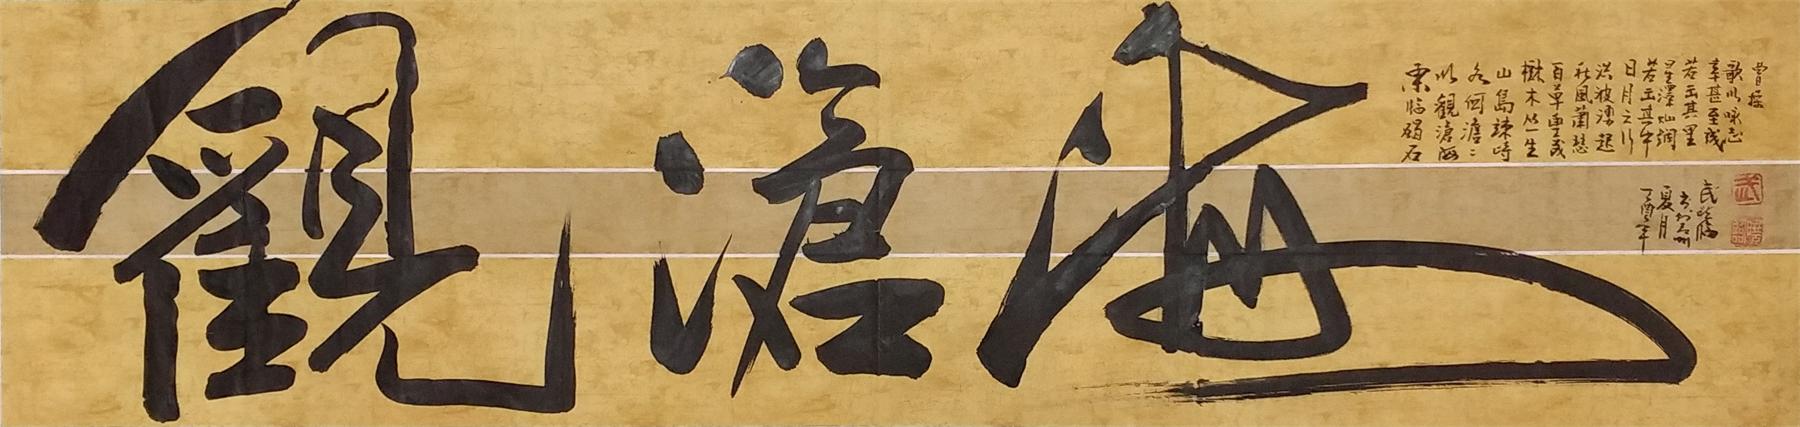 觀滄海
東臨碣石
以觀滄海
水何澹二
山島竦峙
樹木丛生
百草豐茂
秋風蕭瑟
洪波湧起
日月之行
若出其中
星漢灿爛
若出其里
幸甚至哉
歌以咏志
曹操
丁酉年
夏月